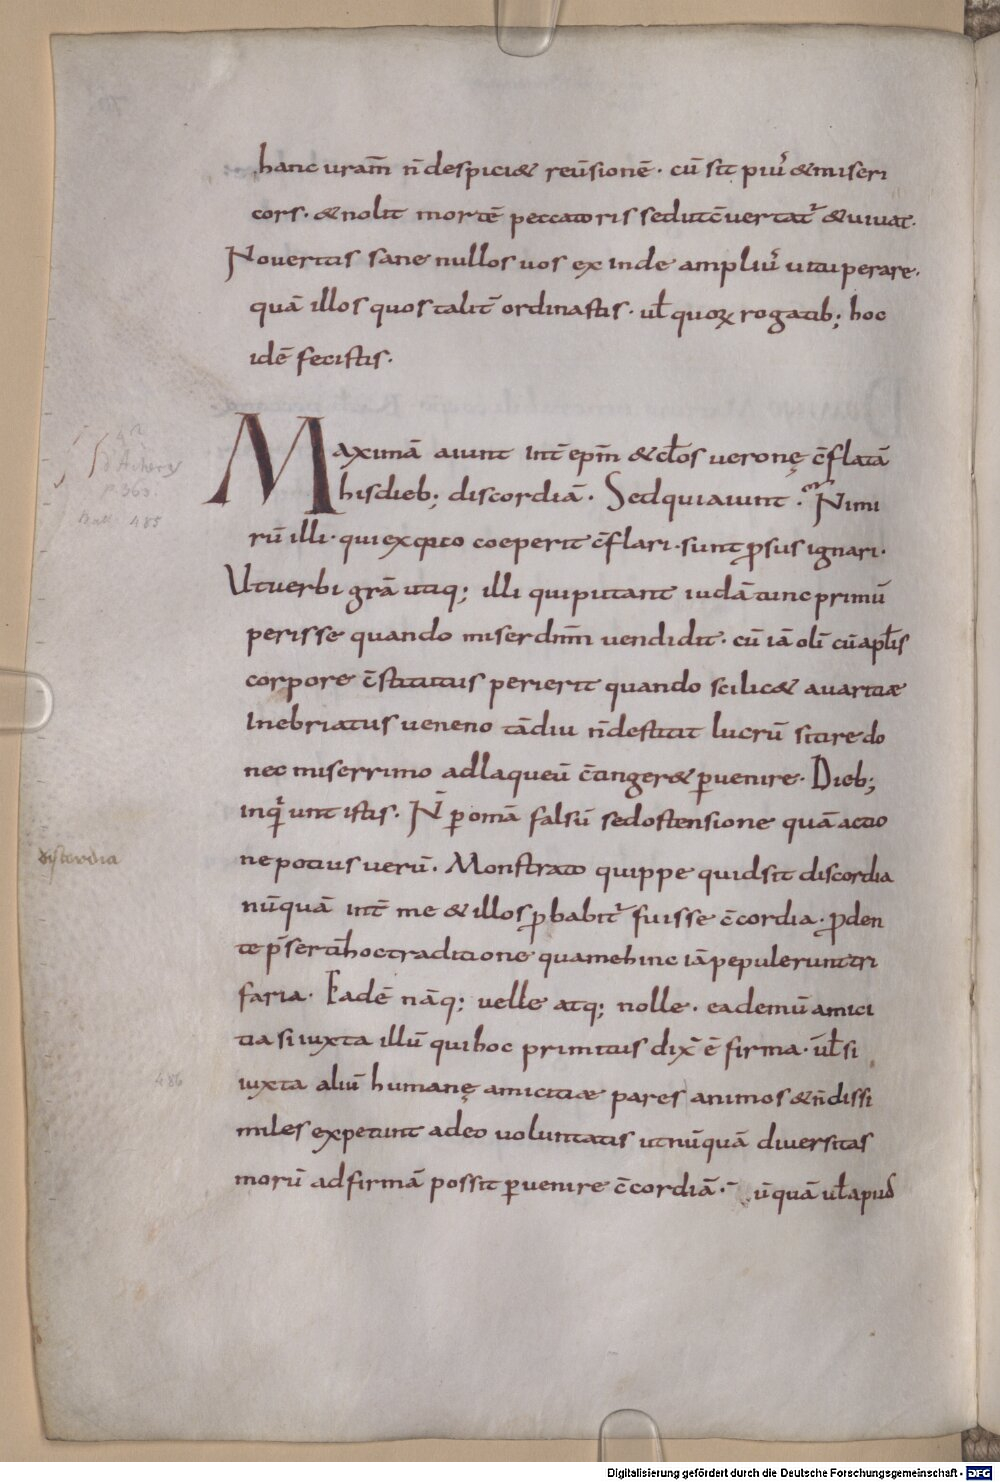 hanc uram̄ n̄ despici& reūsionē · cū sit piu᷒ & miseri
cors · & nolit mortē peccatoris sed ut c̄uertat᷒ & uiuat ·
Nouertis sane nullos uos exinde ampliu᷒ uituperare ·
quā illos quos talit̄ ordinastis · uł quoꝝ rogatib; hoc
idē fecistis ·
Maximā aiunt int̄ ep̄m & cłos ueronę c̄flatā
hisdieb; discordiā · Sed quia aiunt · Nimi
rū illi · qui ex q̄ito coeperit c̄flari · sunt ꝓsus ignari ·
Ut uerbi grā utiq; illi qui putant iudā tunc primū
perisse quando miser dn̄m uendidit · cū iā olī cū apłis
corpore c̄stitutus perierit quando scilic& auaritiæ
inebriatus ueneno tādiu n̄ destitit lucrū sitire do
nec miserrimo ad laqueū c̄tinger& ꝑuenire · Dieb;
inq̄unt istis · N̄ ꝑ omā falsū sed ostensione quā actio
ne potius uerū · Monstrato quippe quid sit discordia
nūquā int̄ me & illos ꝓbabit᷒ fuisse c̄cordia · ꝓden
te p̄sertī hoc traditione qua me hinc iā pepulerunt tri
faria · Eadē nāq; uelle atq; nolle · ea demū amici
tia si iuxta illū qui hoc primitus dix̄ ē firma · uł si
iuxta aliū humanę amicitiæ pares animos & n̄ dissi
miles expetunt adeo uoluntatis ut nūquā diuersitas
morū ad firmā possit ꝑuenire c̄cordiā · ūquā uł apud
discordia
d'Achery
p. 363.
485
486
Digitalisierung gefördert durch die Deutsche Forschungsgemeinschaft - DFG